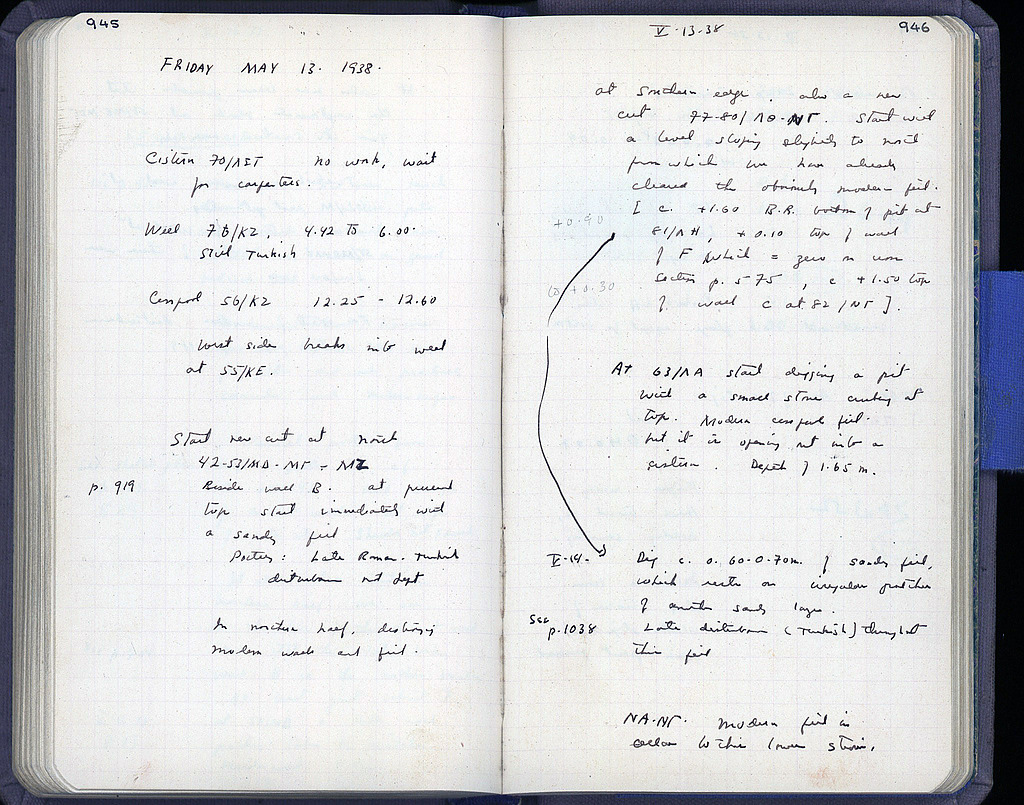 945
FRIDAY MAY 13. 1938.
Cistern 70/ no work, wait
for carpenters.
Well 76/KZ, 4.42 to 6.00.
Still Turkish
Cesspool 56/KZ 12.25 - 12.60
West side breaks into well
at 55/KE.
Start new cut at north
42-53/
p. 919 Beside wall B. at present
top start immediately with
a sandy fill
Pottery: Late Roman. Turkish
disturbance not dept
In northern half, destroying
modern walls and fill.
V.13.38 946
at Southern edge. also a new
cut 77-80/ Start with
a level sloping slightly to north
from which we have already
cleared the obviously modern fill.
[ c. +1.60 B.R. bottom of pit at
+0.90
81/ΛH, +0.10 top of wall
of F which = zero in
section p. 575, c +1.50 top
to +0.30
of wall C at 82/ ].
At 63/ΛA start digging a pit
with a small stone curbing at
top. Modern cesspool fill
but it is opening out into a
cistern. Depth of 1.65 m.
V-14- Dig c. 0.60-0.70m. of sandy fill,
which rests on irregular patches
of another sandy layer.
See p.1038 Late disturbance (Turkish) throughout
this fill
Modern fill in
within lower